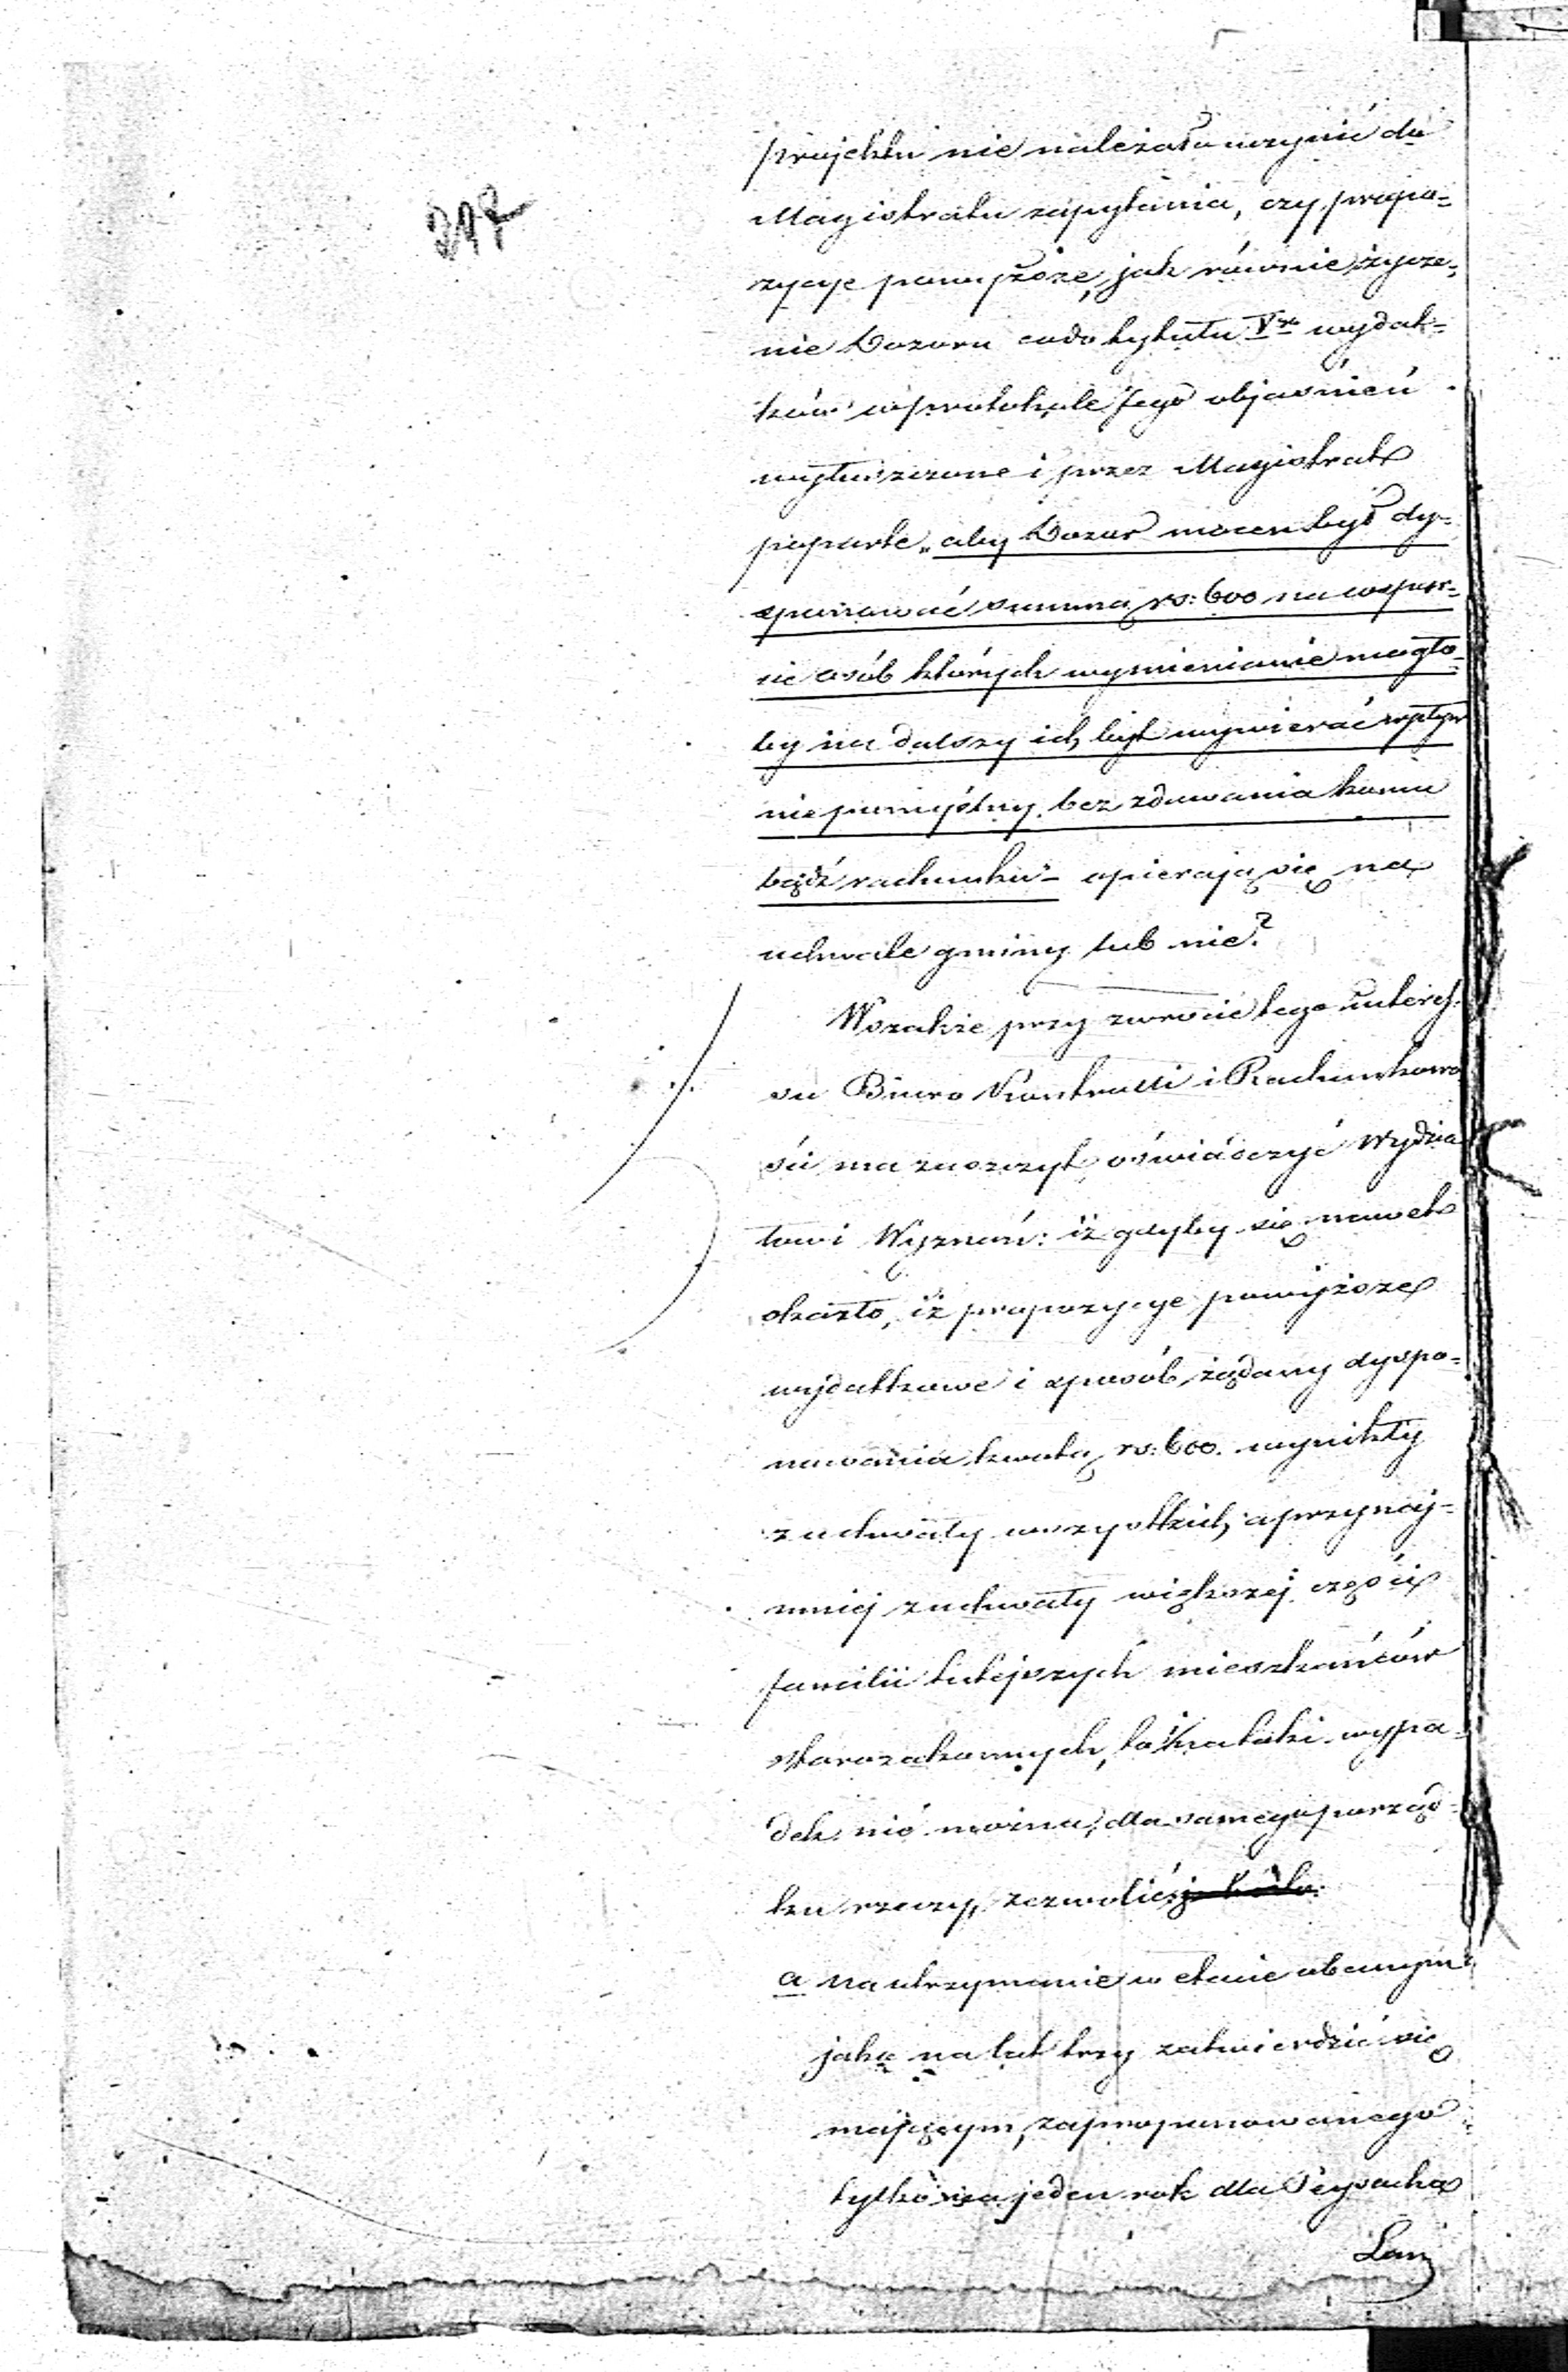 317
projektu nie należało uczynić do
Magistratu zapytania, czy propo=
zycje powyższe, jak również życze=
nie Dozoru co do tytułu Vgo wydat=
ków w protokule Jego objaśnień
wyłuszczone i przez Magistrat
poparte „aby Dozór mocen był dy=
sponować summą rs: 600 na wspar=
cie osób których wymienianie mogło=
by na dalszy ich byt wywierać wpływ
niepomyślny, bez zdawania komu
bądź rachunku" – opierają się na
uchwale gminy lub nie?
Wszakże przy zwrocie tego interes=
su Biuro Kontrolli i Rachunkowo
ści ma zaszczyt oświadczyć Wydzia
łowi Wyznań: iż gdyby się nawet
okazało, iż propozycye powyższe
wydatkowe i sposób żądany dyspo=
nowania kwotą rs: 600. wynikły
z uchwały wszystkich, a przynaj=
mniej z uchwały większej części
familii tutejszych mieszkańców
starozakonnych, to i na taki wypa=
dek nie można, dla samego porząd=
ku rzeczy, zezwolić
a na utrzymanie w etacie obecnym
jako na lat trzy zatwierdzić się
mającym, zaproponowanego
tylko na jeden rok dla Peysacha
Lan